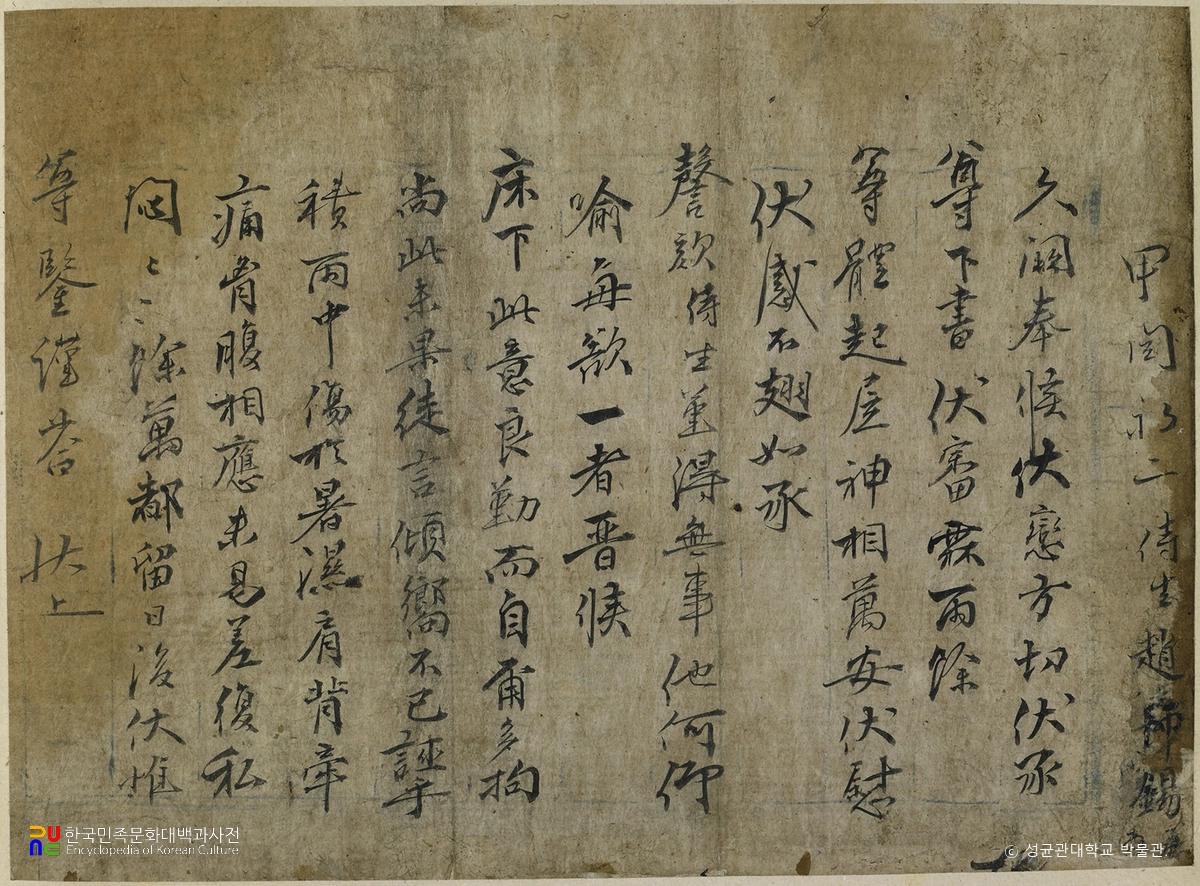 甲閏初二侍生趙師錫
久闕奉候伏戀方切伏承
尊下書伏審霖雨餘
尊體起居神相萬安伏慰
伏感不翅如承
謦欬侍生菫得無事他何仰
喻每欲一者晋候
床下此意良勤而自爾多拘
尚此未果徒言傾嚮不已誣乎
積雨中傷於暑濕肩背牽
痛骨腹相應未見差復私
悶〻〻餘萬都留日後伏惟
尊鑒謹答狀上
한국민족문화대백과사전
Encyclopedia of Korean Culture
© 성균관대학교 박물관